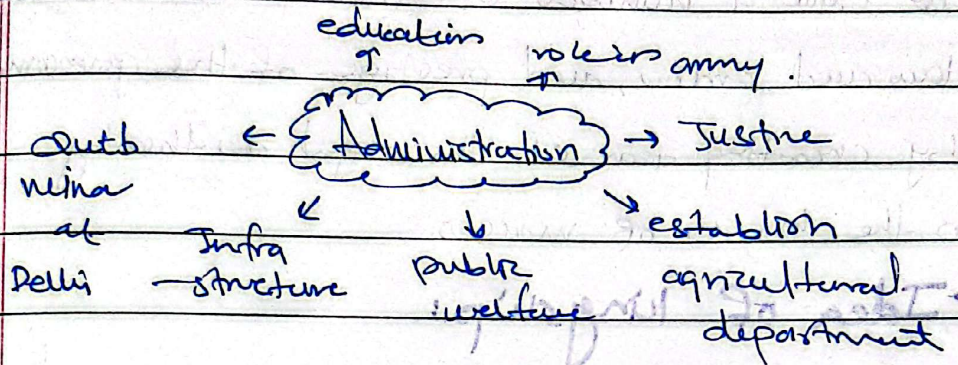 education
role in army.
Qutb ← Administration → Justice
mina
at
Delhi
Infra
-structure
public
welfare
establish
agricultural
department